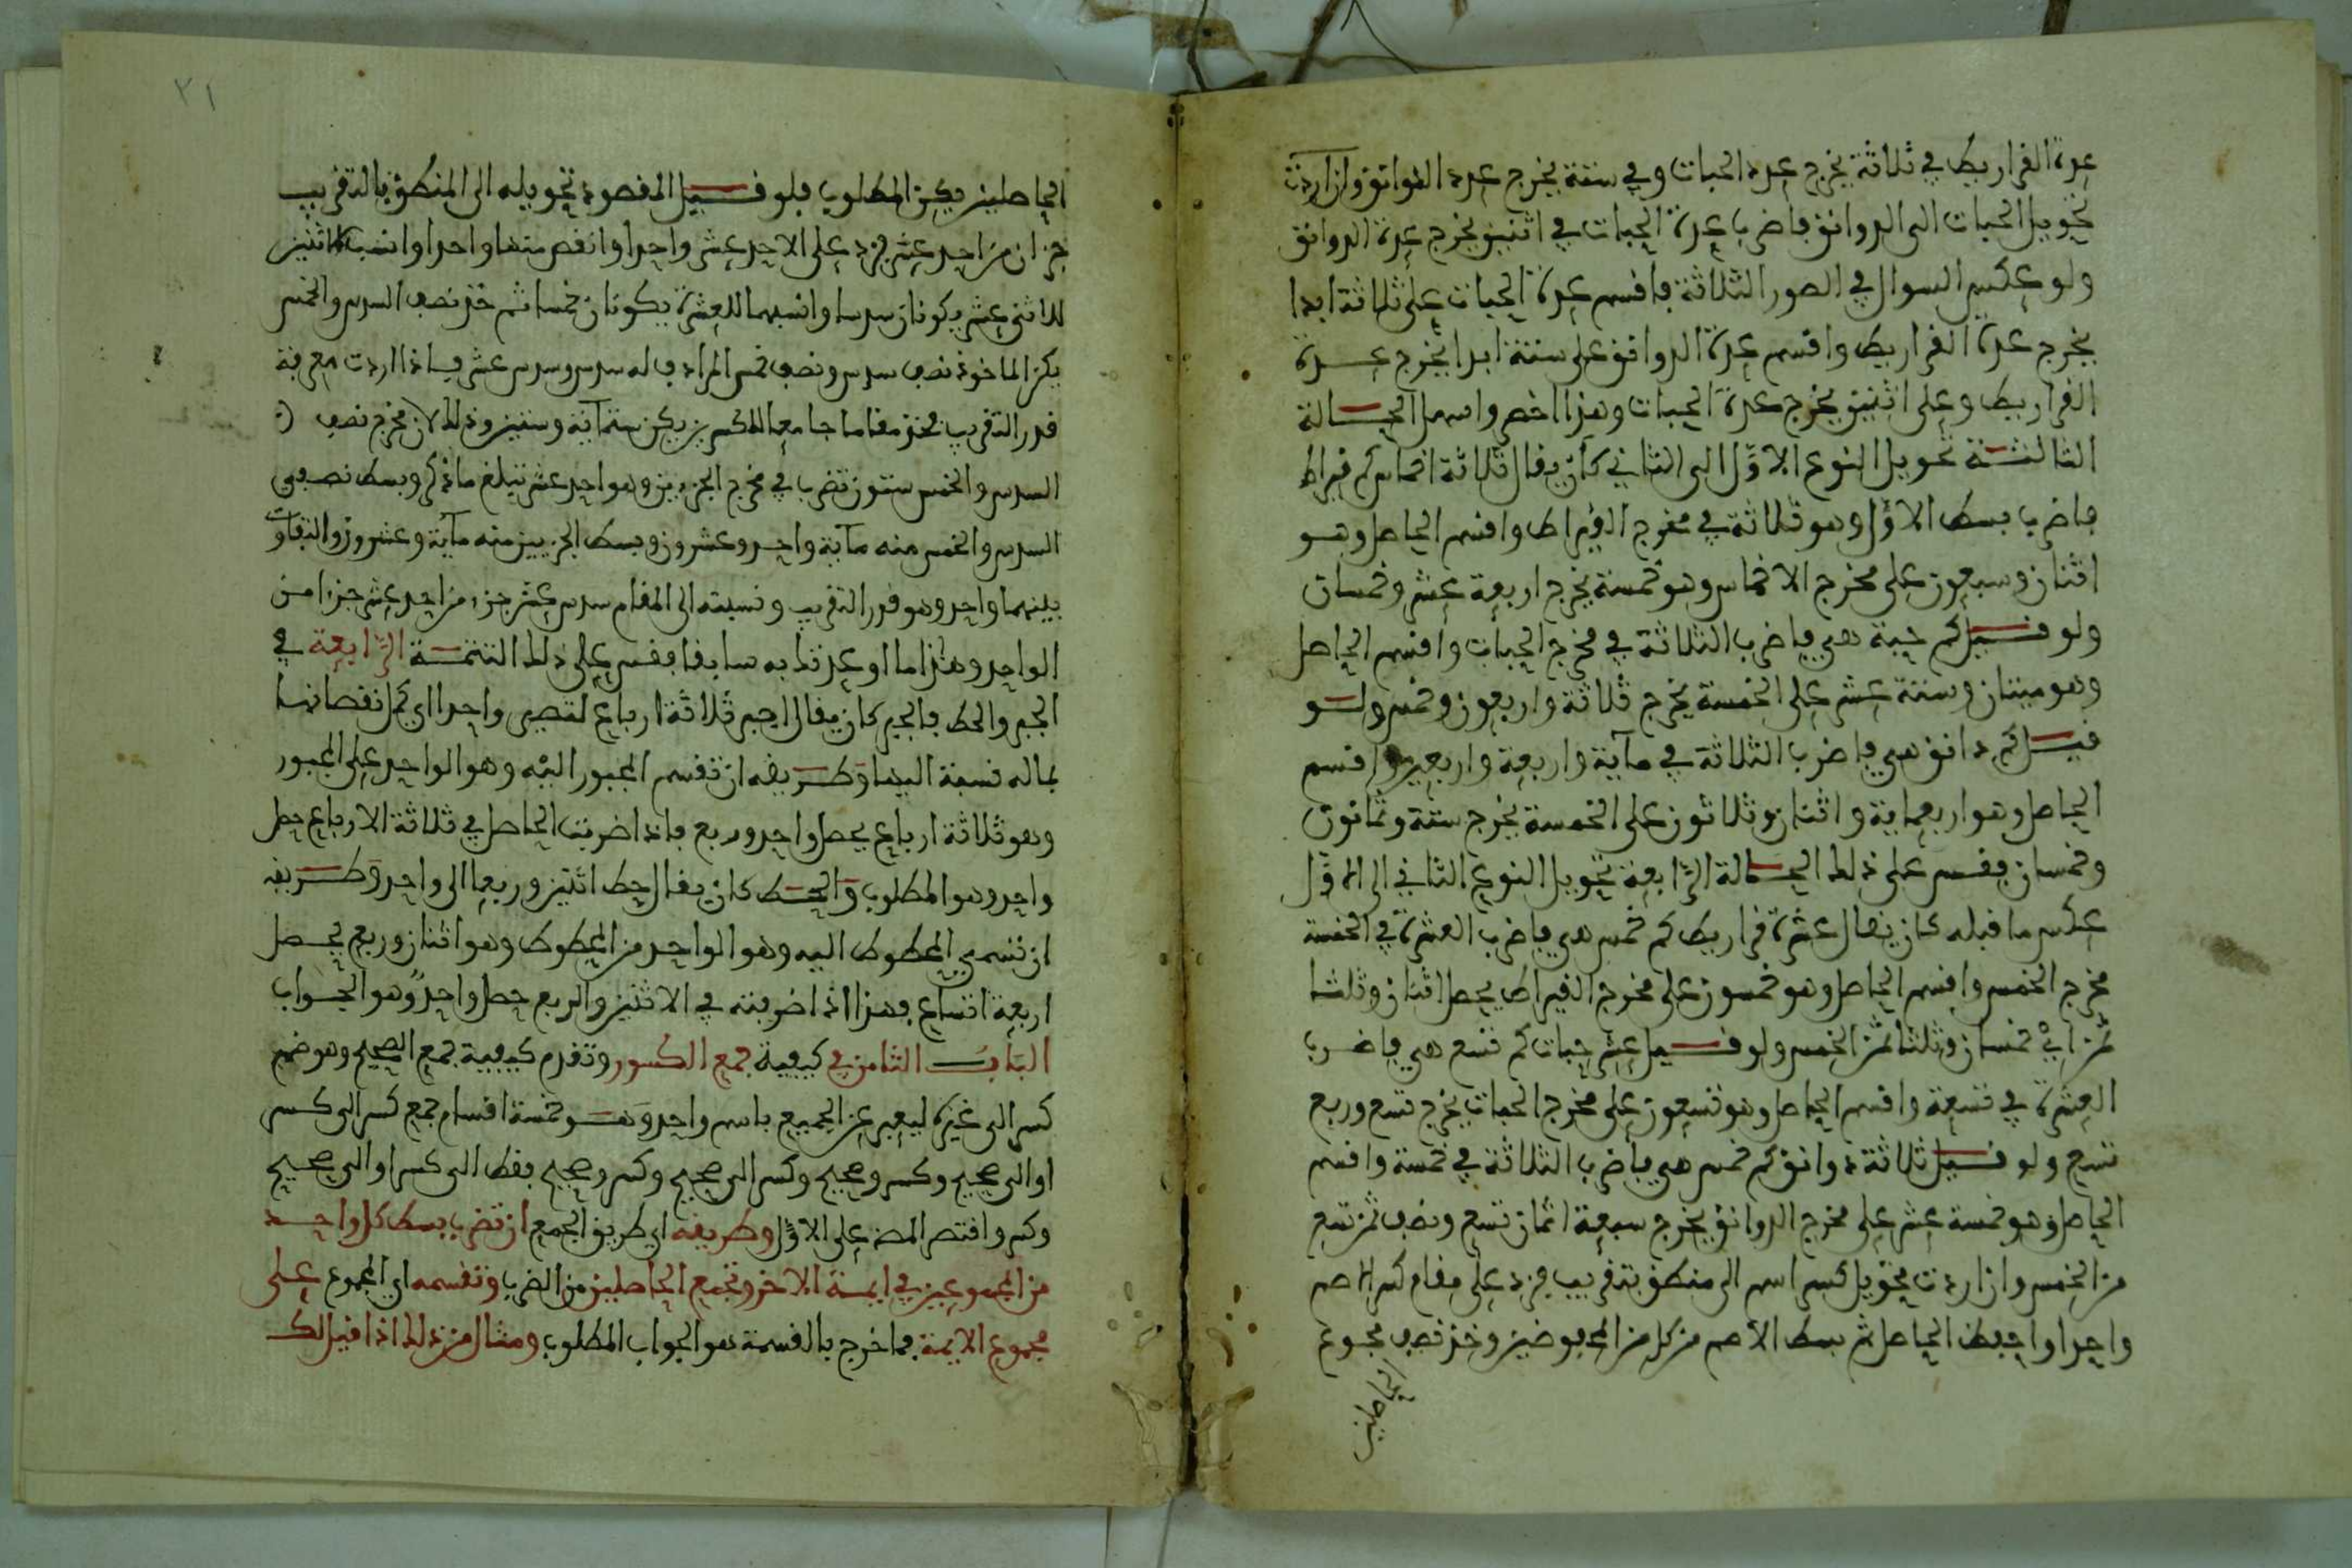 عدة القراريط في ثلاثة يخرج عدد الحبات وفي ستة يخرج عدد الدوانق وان اردت
تحويل الحبات الى الدوانق فاضرب عدة الحبات في اثنين يخرج عدة الدوانق
ولو عكس السوال في الصور الثلاثة فاقسم عدة الحبات على ثلاثة ابدا
يخرج عدة القراريط واقسم عدة الدوانق على ستة ابدا يخرج عدة
القراريط وعلى اثنين يخرج عدة الحبات وهذا اخصر واسهل الحالة
الثالثة تحويل النوع الاول الى الثاني كان يقال ثلاثة اخماس كم قيراط
فاضرب بسط الاول وهو ثلاثة في مخرج القيراط واقسم الحاصل وهو
اثنان وسبعون على مخرج الاخماس وهو خمسة يخرج اربعة عشر وخمسان
ولو قيل كم حبة هي فاضرب الثلاثة في مخرج الحبات واقسم الحاصل
وهو ميتان وستة عشر على الخمسة يخرج ثلاثة واربعون وخمس ولو
قيل كم دانق هي فاضرب الثلاثة في ماية واربعة واربعين واقسم
الحاصل وهو اربعماية واثنان وثلاثون على الخمسة يخرج ستة وثمانون
وخمسان فقس على ذلك الحالة الرابعة تحويل النوع الثاني الى الاول
عكس ما قبله كان يقال عشرة قراريط كم خمس هي فاضرب العشرة في الخمسة
مخرج الخمس واقسم الحاصل وهو خمسون على مخرج القيراط يحصل اثنان وثلثا
ثمن اي خمسان وثلثا ثمن الخمس ولو قيل عشر حبات كم تسع هي فاضرب
العشرة في تسعة واقسم الحاصل وهو تسعون على مخرج الحبات يخرج تسع وربع
تسع ولو قيل ثلاثة دوانق كم خمس هي فاضرب الثلاثة في خمسة واقسم
الحاصل وهو خمسة عشر على مخرج الدوانق يخرج سبعة اثمان تسع ونصف ثمن تسع
من الخمس وان اردت تحويل كسر اصم الى منطق بتقريب فزد على مقام كسر الاصم
واحدا واحفظ الحاصل ثم بسط الاصم من كل من المحفوضين وخذ نصف مجموع
الحاصلين
٢١
الحاصلين يكن المطلوب فلو قيل المقصود تحويله الى المنطق بالتقريب
جزان من احد عشر فزد على الاحد عشر واحدا وانقص منها واحدا وانسب الاثنين
للاثني عشر يكونان سدسا وانسبهما للعشرة يكونان خمسا ثم خذ نصف السدس والخمس
يكن الماخوذ نصف سدس ونصف خمس المرادف له سدس وسدس عشر فاذا اردت معرفة
قدر التقريب فخذ مقاما جامعا للكسرين يكن ستماية وستين وذلك لان مخرج نصف
السدس والخمس ستون تضرب في مخرج الجزءين وهو احد عشر تبلغ ما ذكر وبسط نصفي
السدس والخمس منه ماية واحد وعشرون وبسط الجزيين منه ماية وعشرون والتفاوت
بينهما واحد وهو قدر التقريب ونسبته الى المقام سدس عشر جزء من احد عشر جزا من
الواحد وهذا ما اوعدتك به سابقا فقس على ذلك التتمة الرابعة في
الجبر والحط فالجبر كان يقال اجبر ثلاثة ارباع لتصير واحدا اي كمل نقصانها
بماله نسبة اليها وطريقه ان تقسم المجبور اليه وهو الواحد على المجبور
وهو ثلاثة ارباع يحصل واحد وربع فاذا ضربت الحاصل في ثلاثة الارباع حصل
واحد وهو المطلوب والحط كان يقال حط اثنين وربعا الى واحد وطريقه
ان تسمي المحطوط اليه وهو الواحد من المحطوط وهو اثنان وربع يحصل
اربعة اتساع فهذا اذا ضربته في الاثنين والربع حصل واحد وهو الجواب
الباب الثامن في كيفية جمع الكسور وتقدم كيفية جمع الصحيح وهو ضم
كسر الى غيره ليعبر عن الجميع باسم واحد وهو خمسة اقسام جمع كسر الى كسر
او الى صحيح وكسر وصحيح وكسر الى صحيح وكسر وصحيح فقط الى كسر او الى صحيح
وكسر واقتصر المص على الاول وطريقه اي طريق الجمع ان تضرب بسط كل واحد
من المجموعين في ايمة الاخر وتجمع الحاصلين من الضرب وتقسمه اي المجموع على
مجموع الايمة فما خرج بالقسمة هو الجواب المطلوب ومثال من ذلك اذا قيل لك